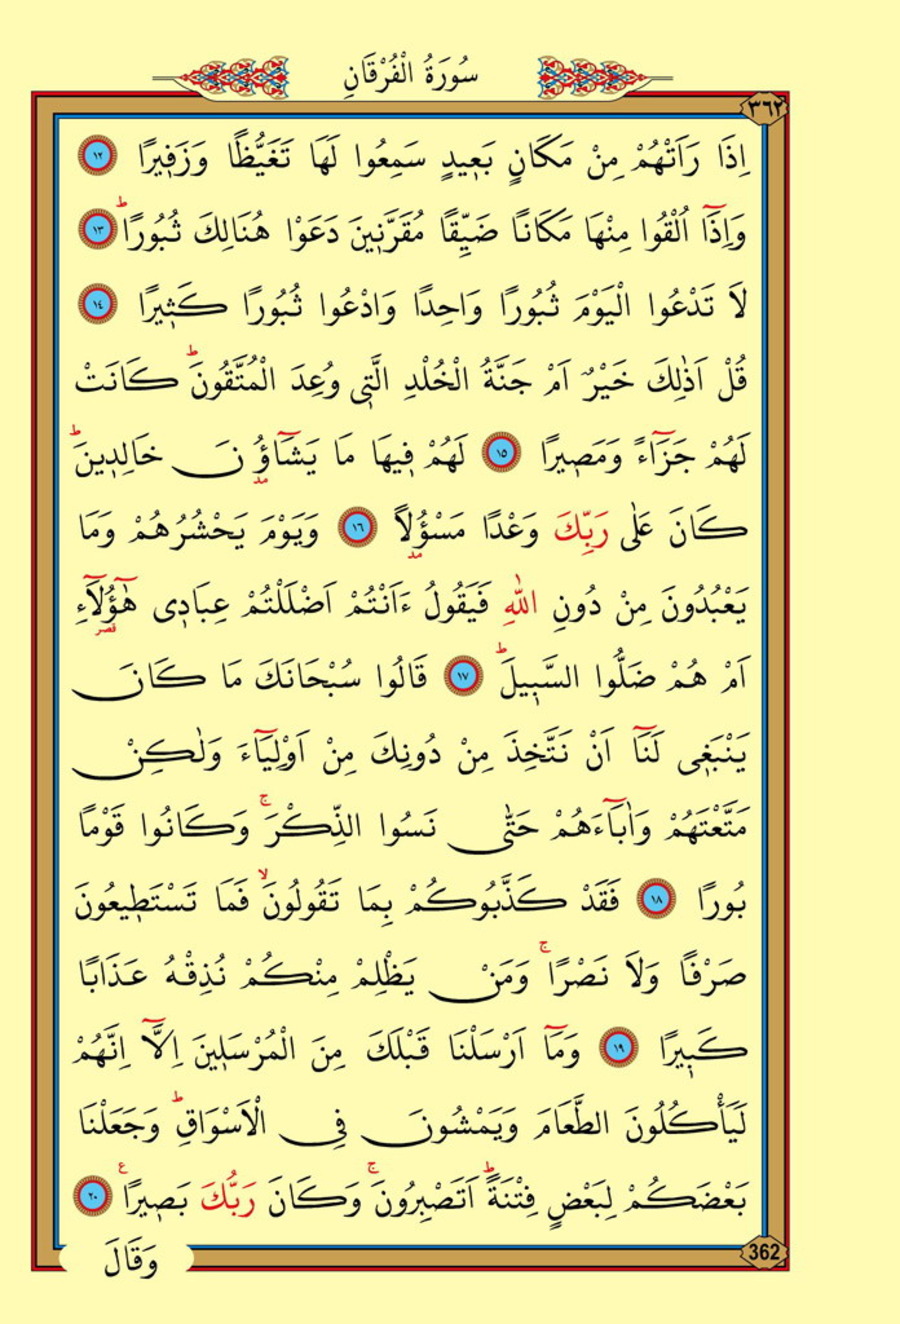 سُورَةُ الْفُرْقَانِ
٣٦٢
اِذَا رَاَتْهُمْ مِنْ مَكَانٍ بَعٖيدٍ سَمِعُوا لَهَا تَغَيُّظًا وَزَفٖيرًا ١٢
وَاِذَٓا اُلْقُوا مِنْهَا مَكَانًا ضَيِّقًا مُقَرَّنٖينَ دَعَوْا هُنَالِكَ ثُبُورًاؕ ١٣
لَا تَدْعُوا الْيَوْمَ ثُبُورًا وَاحِدًا وَادْعُوا ثُبُورًا كَثٖيرًا ١٤
قُلْ اَذٰلِكَ خَيْرٌ اَمْ جَنَّةُ الْخُلْدِ الَّتٖى وُعِدَ الْمُتَّقُونَؕ كَانَتْ
لَهُمْ جَزَٓاءً وَمَصٖيرًا ١٥ لَهُمْ فٖيهَا مَا يَشَٓاؤُنَ خَالِدٖينَؕ
كَانَ عَلٰى رَبِّكَ وَعْدًا مَسْؤُلًا ١٦ وَيَوْمَ يَحْشُرُهُمْ وَمَا
يَعْبُدُونَ مِنْ دُونِ اللّٰهِ فَيَقُولُ ءَاَنْتُمْ اَضْلَلْتُمْ عِبَادٖى هٰٓؤُلَٓاءِ
اَمْ هُمْ ضَلُّوا السَّبٖيلَؕ ١٧ قَالُوا سُبْحَانَكَ مَا كَانَ
يَنْبَغٖى لَنَٓا اَنْ نَتَّخِذَ مِنْ دُونِكَ مِنْ اَوْلِيَٓاءَ وَلٰكِنْ
مَتَّعْتَهُمْ وَاٰبَٓاءَهُمْ حَتّٰى نَسُوا الذِّكْرَۚ وَكَانُوا قَوْمًا
بُورًا ١٨ فَقَدْ كَذَّبُوكُمْ بِمَا تَقُولُونَۙ فَمَا تَسْتَطٖيعُونَ
صَرْفًا وَلَا نَصْرًاۚ وَمَنْ يَظْلِمْ مِنْكُمْ نُذِقْهُ عَذَابًا
كَبٖيرًا ١٩ وَمَٓا اَرْسَلْنَا قَبْلَكَ مِنَ الْمُرْسَلٖينَ اِلَّٓا اِنَّهُمْ
لَيَأْكُلُونَ الطَّعَامَ وَيَمْشُونَ فِى الْاَسْوَاقِؕ وَجَعَلْنَا
بَعْضَكُمْ لِبَعْضٍ فِتْنَةًؕ اَتَصْبِرُونَۚ وَكَانَ رَبُّكَ بَصٖيرًا ع ٢٠
362
وَقَالَ